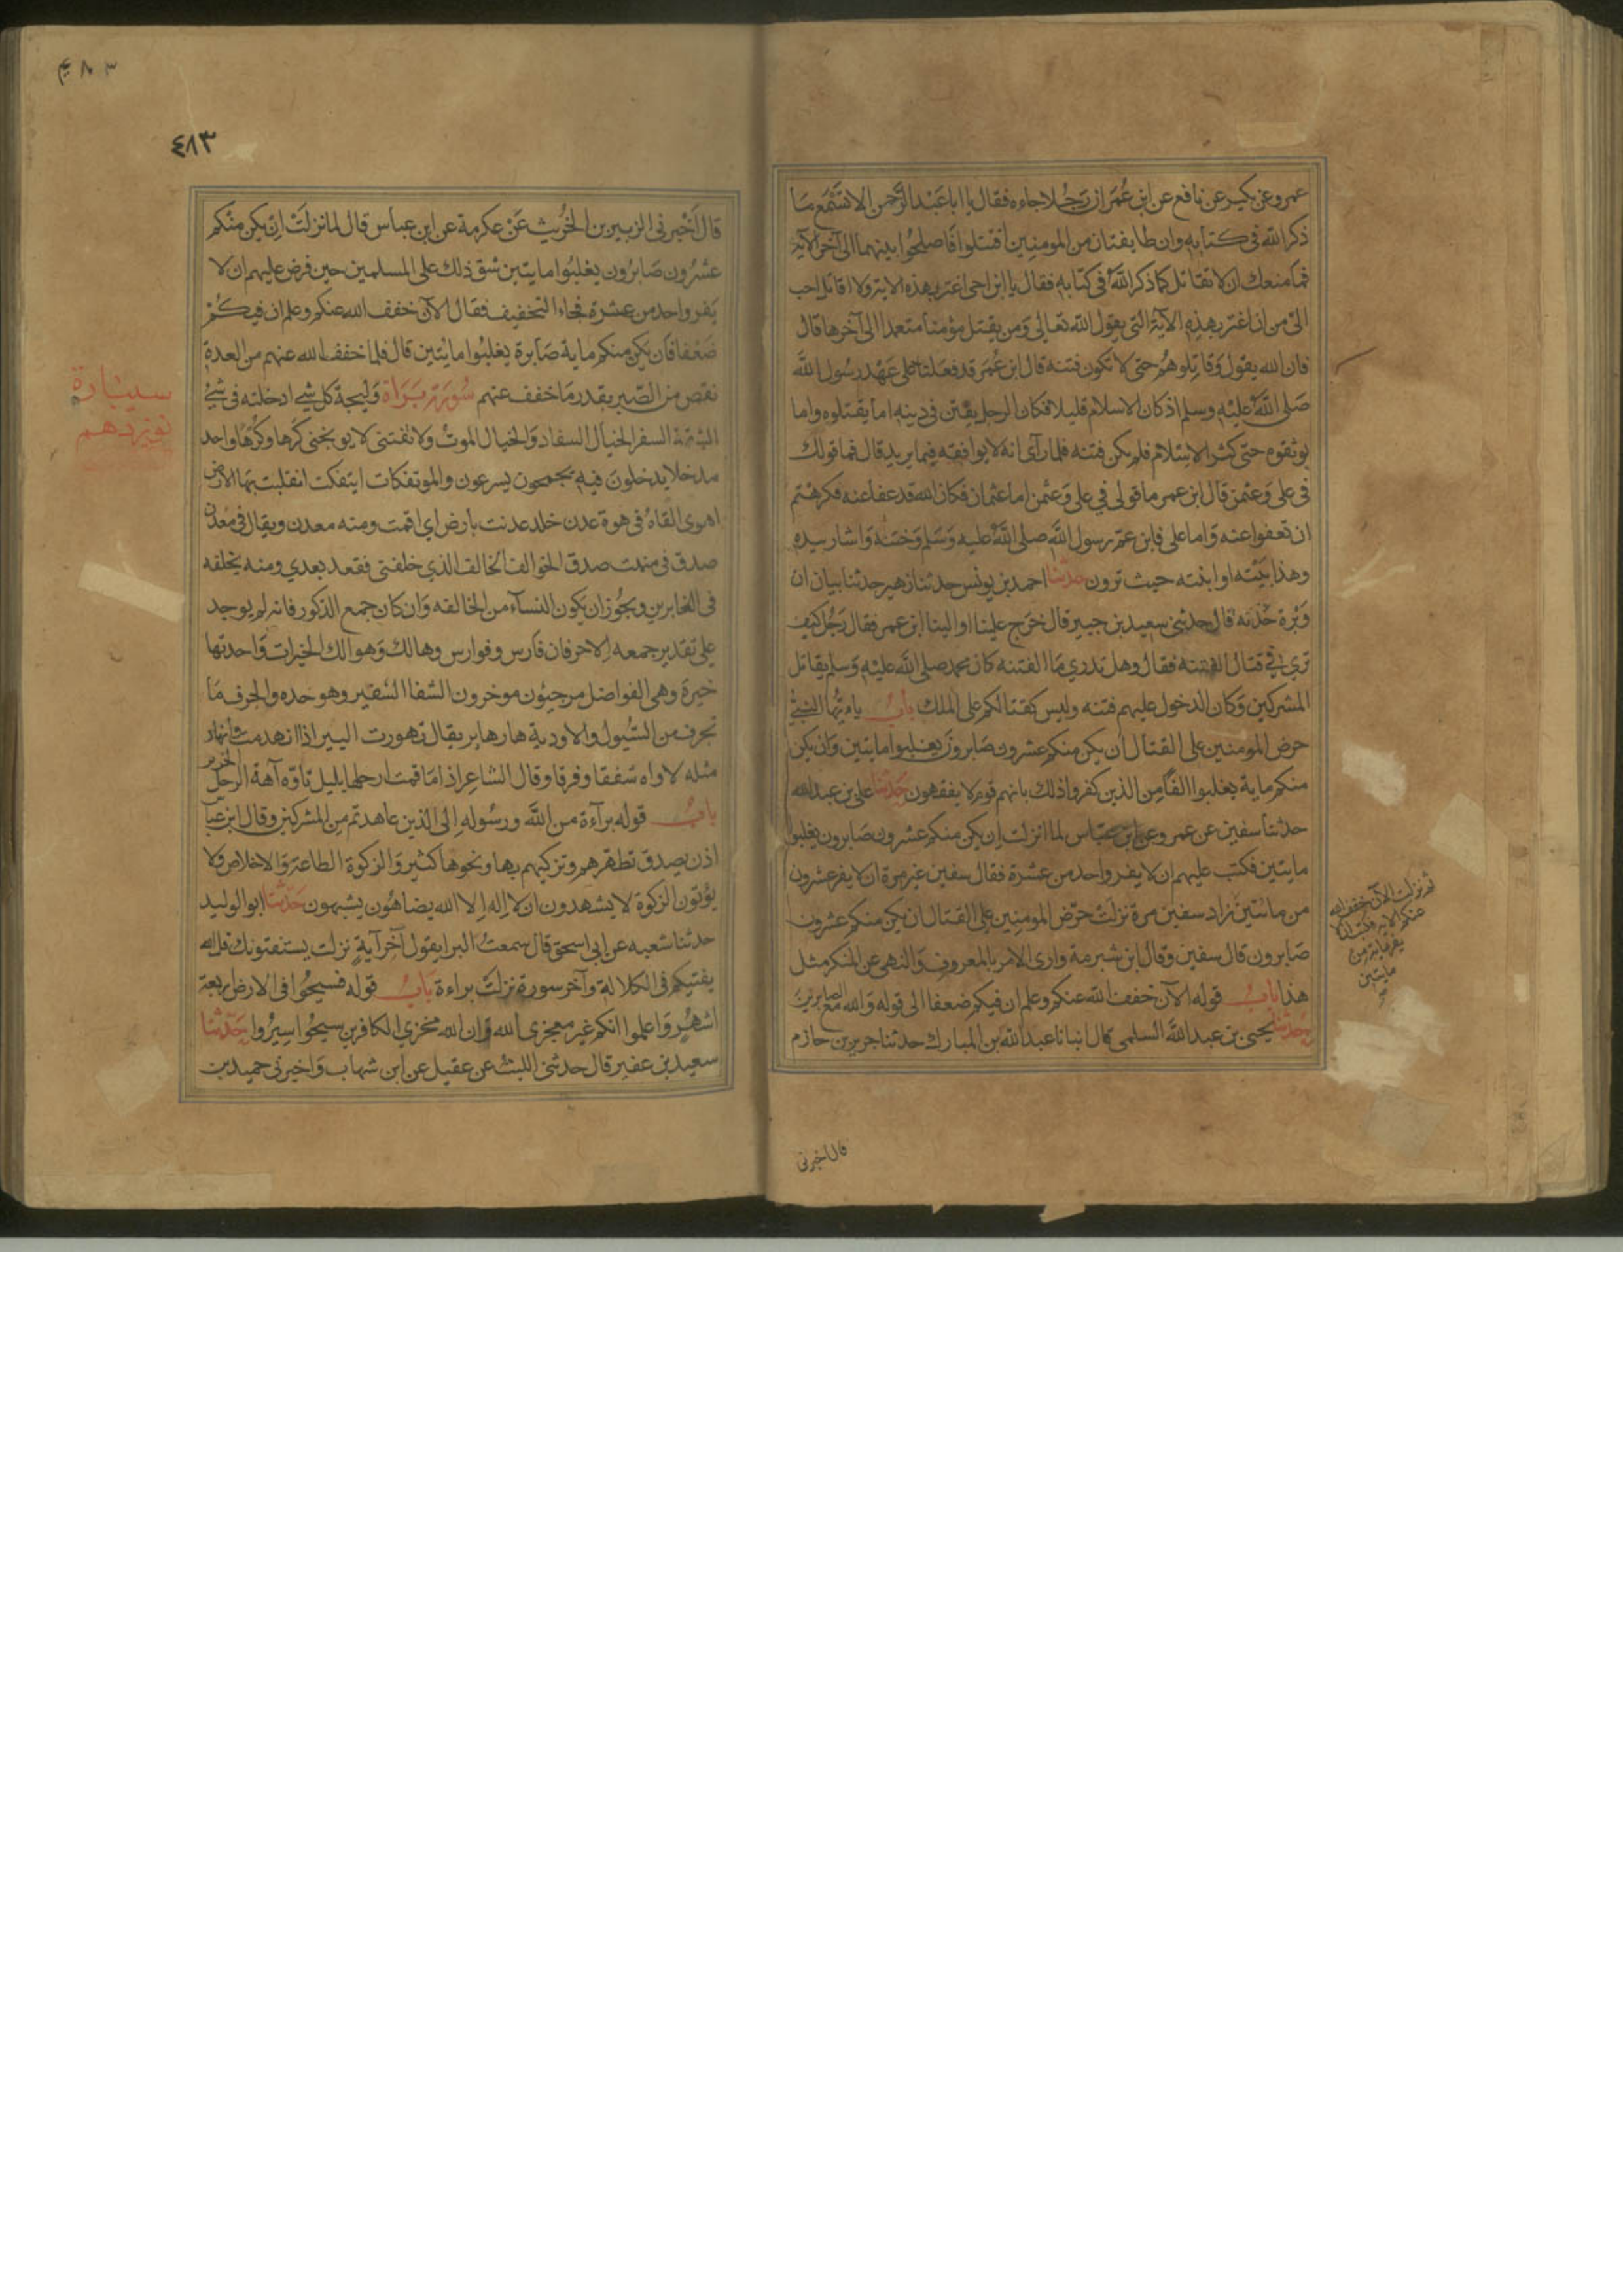 عمرو عن بكير عن نافع عن ابن عُمَر ان رَجُلا جاءه فقال يا ابا عَبْد الرَّحمن الا تسْمَع مَا
ذكر الله في كتابه وان طايفتان من المومنين اقتتلوا فَاصلحُوا بينهما الى آخر الآية
فما منعك ان لا تقاتل كما ذكر اللهُ في كتابه فقال يا ابن اخى اغتر بهذه الاية ولا اقاتل احب
الىّ من ان اغتر بهذه الآية التى يقول الله تعالى وَمن يقتل مؤمنا متعمدا الى آخرها قال
فان الله يقول وَقاتِلوهُم حتى لا تكون فتنة قال ابن عُمَر قد فعَلنا على عَهْد رسُول الله
صَلى اللهُ عليْه وسلم اذ كان الاسلام قليلا فكان الرجل يفتن في دينه اما يقتلوه واما
يوثقوه حتى كثر الاسْلام فلم يكن فتنه فلما رآى انه لا يوافقه فيما يريد قال فما قولك
فى على وَعثمن قال ابن عمر ما قولى في على وَعثمن اما عثمان فكان الله قد عفا عنه فكرهْتم
ان تعفوا عنه وَاما على فابن عمّ رسول الله صلى اللهُ عليه وَسَلم وَختنهُ وَاشار بيده
وهذا بَيْته او ابنته حيث ترون حدثنا احمد بن يونس حدثنا زهير حدثنا بيان ان
وَبْرة حَدّثه قال حدثنى سعيد بن جبير قال خرَج علينا او الينا ابن عمر فقال رَجُل كيف
ترى في قتال الفتنه فقال وهل تدري مَا الفتنه كان محمد صلى اللهُ عليْه وَسلم يقاتل
المشركين وَكان الدخول عليهم فتنه وليس كقتالكم على الملك بابُ يا ايّها النبيّ
حرض المومنين على القتال ان يكن منكم عشرون صَابرونَ يغلبوا مايتين وَان يكن
منكم ماية يغلبوا الفًا مِن الذين كفروا ذلك بانهم قوم لا يفقهون حَدثنا على بن عبد الله
حدثنا سفين عن عمرو عن ابن عباس لما انزلت اِن يكن منكم عشرون صَابرون يغلبوا
مايتين فكتب عليهم ان لا يفر واحد من عشرة فقال سفين غير مرة ان لا يفر عشرون
من مائتين زاد سفين مرة نزلتْ حرّض المومنِين على القتال ان يكن منكم عشرون
صَابرون قال سفين وقال ابن شبرمة وارى الامر بالمعروفِ وَالنهى عن المنكر مثل
هذا بابُ قوله الآن خفف الله عنكم وعلم ان فيكم ضعفا الى قوله وَالله مع الصابرين
حدثنا يحيى بن عبد الله السلمى قال انبانا عبد الله بن المبارك حدثنا جرير بن حازم
ثم نزلت الآن خفف الله
عنكم الاية فكتب ان لا
يفر ماية من
مايتين
قال اخبرنى
٤٨٣
قال اَخْبرنى الزبير بن الخرِّيث عَنْ عكرمة عن ابن عباس قال لما نزلَتْ اِن يكن منْكم
عشرُون صَابرُون يغلبُوا مايتين شق ذلك على المسلمين حين فرض عليهم ان لا
يَفر واحد من عشرة فجاء التخفيف فقال الآن خفف الله عنكم وعلم ان فيكُمْ
ضَعْفا فان يكن منكم ماية صَابرة يغلبُوا مائتين قال فلما خفف الله عنهم من العدة
نقص من الصّبر بقدر مَا خفف عنهم سُورَة بَرَاة وَليجة كل شئ ادخلته فى شئ
الشقة السفر الخبال الفساد وَالخبال الموتُ ولا تفتنى لا توبخنى كَرها وكُرْها وَاحد
مدخلا يدخلونَ فيه يجمحون يسرعون والموتفكات ايتفكت انقلبت بها الارض
اهوى القاهُ فى هوة عدن خلد عدنت بارض اي اقمت ومنه معدن ويقال فى مَعدن
صدق في منبت صدق الخوالف الخالف الذي خلفنى فقعد بعدي ومنه يخلفه
فى الغابرين ويجُوز ان يكون النسآء من الخالفه وَان كان جمع الذكور فانه لم يوجد
على تقدير جمعه الا حرفان فارس وفوارس وهالك وَهوالك الخيرات وَاحدتها
خيرة وهى الفواضل مرجئون موخرون الشفا الشفير وهو حده والجرف مَا
تجرف من السّيول والاودية هار هاير يقال تهورت البير اذا انهدمت وانهار
مثله لاواه شفقا وفرقا وقال الشاعر اذا مَا قمت ارحلها بليل تاوّه آهة الرجل الحزين
بابُ قوله برآءة من الله ورسُوله اِلى الذين عاهدتم مِن المشركين وقال ابن عبّا
اذن يصدق تطهرهم وتزكيهم بها ونحوها كثير وَالزكوة الطاعة وَالاخلاص ولا
يؤتون الزكوة لا يشهدون ان لا اِله اِلا الله يضاهُون يشبهون حَدّثنا ابو الوليد
حدثنا شعبه عن ابى اسحق قال سمعتُ البرا يقول آخر آيةٍ نزلت يستفتونك قل الله
يفتيكم فى الكلالة وآخر سورة نزلتْ براءة بَابُ قوله فسيحُوا فى الارض اربعة
اشهُر وَاعلموا انكم غير معجزى الله وَان الله مخزي الكافرين سيحُوا سِيرُوا حَدّثنا
سعيد بن عفير قال حدثنى الليث عن عقيل عن ابن شهاب وَاخبرنى حميد بن
سيپارة
نوزدهم